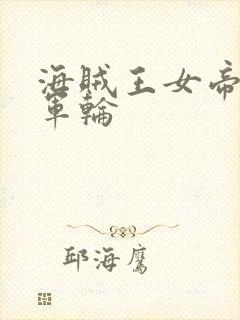 海賊王女帝
軍輪
邱海鷹